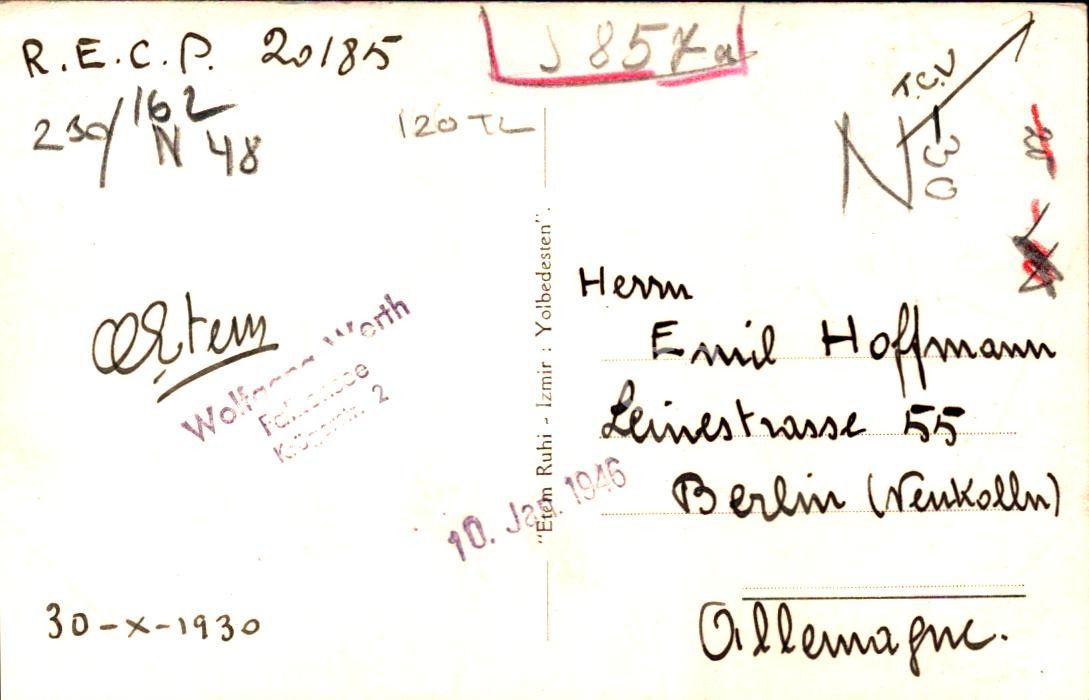 R.E.C.P. 20/85
230/162
N 48
120 TL
J 857a
T.C.V
N
30
Wolfgang Werth
2
10. Jan. 1946
30-X-1930
"Etem Ruhi - Izmir : Yolbedesten".
Herrn
Emil Hoffmann
Leinestrasse 55
Berlin (Neukolln)
Allemagne.